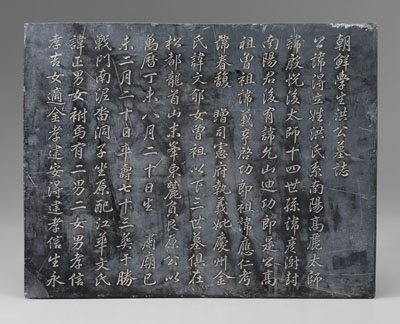 朝鮮學生洪公墓誌
公諱得立姓洪氏系南陽高麗太師
諱殷悅後太師十四世孫諱彦澍封
南陽君後有諱允山迪功郎是公高
祖曾祖諱萬亨啓功郎祖諱應仁考
諱春馥 贈司憲府執義妣慶州金
氏諱文郁女曾祖以下三世墓俱在
松都龍首山末峯東麓負艮原公以
萬曆丁未八月二十日生 肅廟己
未二月二十日卒壽七十三葬于勝
戰門南泥峀洞子坐原配江華文氏
諱正男女樹與有二男二女男孝信
孝吉女適金孝建安得建孝信生永